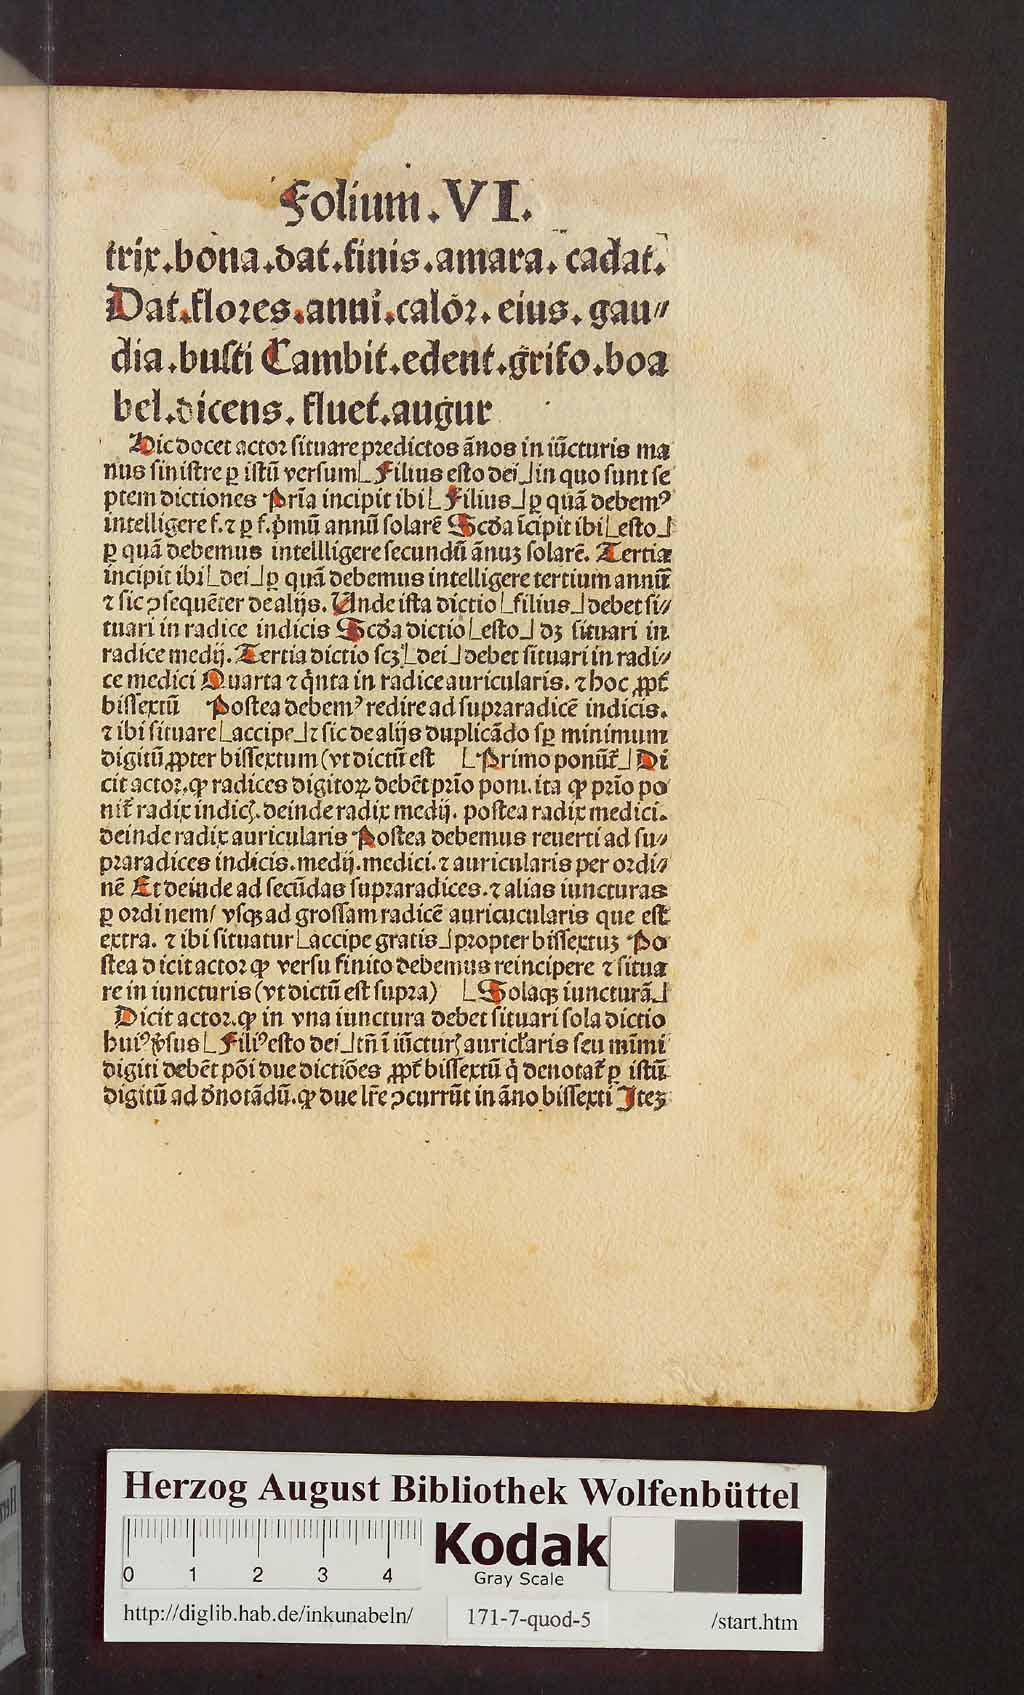 Folium .VI.
trix.bona.dat.finis.amara. cadat.
Dat.flores.anni.calor. eius. gau⸗
dia.busti Cambit.edent.grifo.boa
bel.dicens. fluet.augur
Hic docet actor situare predictos ãnos in iũcturis ma
nus sinistre ꝑ istũ versum⌊Filius esto dei⌋in quo sunt se
ptem dictiones Pria̅ incipit ibi⌊Filius⌋ꝑ quã debemꝰ
intelligere f. ⁊ ꝑ f. p̄mũ annũ solarẽ Scd̄a ĩcipit ibi⌊esto⌋
ꝑ quã debemus intellligere secundũ ãnuꝫ solarẽ. Tertia
incipit ibi⌊dei⌋ꝑ quã debemus intelligere tertium annũ
⁊ sic ↄsequẽter de alijs. Unde ista dictio⌊filius⌋debet si⸗
tuari in radice indicis Scd̄a dictio⌊esto⌋dꝫ situari in
radice medij. Tertia dictio scꝫ⌊dei⌋debet situari in radi⸗
ce medici Quarta ⁊ q̇nta in radice auricularis. ⁊ hoc ꝓpt̄
bissextũ Postea debemꝰ redire ad supraradicẽ indicis.
⁊ ibi situare⌊accipe⌋⁊ sic de alijs duplicãdo sꝑ minimum
digitũ ꝓpter bissextum (vt dictũ est ⌊Primo ponũt̄⌋Di
cit actor. ꝙ radices digitoꝝ debẽt prĩo poni. ita ꝙ prĩo po
nit̄ radix indicꝭ. deinde radix medij. postea radix medici.
deinde radix auricularis Postea debemus reuerti ad su⸗
praradices indicis. medij. medici. ⁊ auricularis per ordi⸗
nẽ Et deinde ad secũdas supraradices. ⁊ alias iuncturas
ꝑ ordinem/ vsqꝫ ad grossam radicẽ auricucularis que est
extra. ⁊ ibi situatur⌊accipe gratis⌋propter bissextuꝫ Po
stea dicit actor ꝙ versu finito debemus reincipere ⁊ situa
re in iuncturis (vt dictũ est supra) ⌊Solaqꝫ iuncturã⌋
Dicit actor. ꝙ in vna iunctura debet situari sola dictio
huiꝰ v̓sus⌊Filiꝰ esto dei⌋tñ ĩ iũcturꝭ auricl̄aris seu mĩmi
digiti debẽt põi due dictiões ꝓpt̄ bissextũ q̇ denotat̄ ꝑ istũ
digitũ ad d̓notãdũ. ꝙ due lr̃e ↄcurrũt in ãno bissexti Iteꝫ
Herzog August Bibliothek Wolfenbüttel
Kodak
Gray Scale
0 1 2 3 4
http://diglib.hab.de/inkunabeln/ 171-7-quod-5 /start.htm